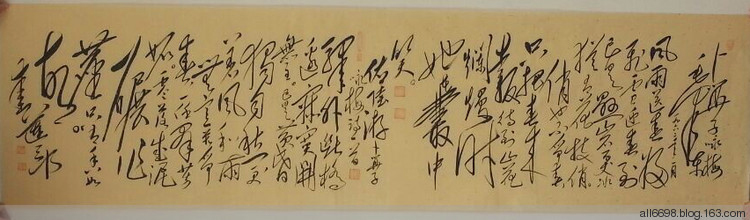 卜算子咏梅
毛泽东
一九六一年十二月
风雨送春归
飞雪迎春到
已是悬崖百丈冰
犹有花枝俏
俏也不争春
只把春来
报待到山花
烂熳时
她在丛中
笑
陆游卜算子
咏梅
驿外断桥
边寂寞开
无主已是黄昏
独自愁更
著风和雨
无意苦争
春一任群芳
妒零落成泥
碾作
尘只有香如
故
all6698.blog.163.com